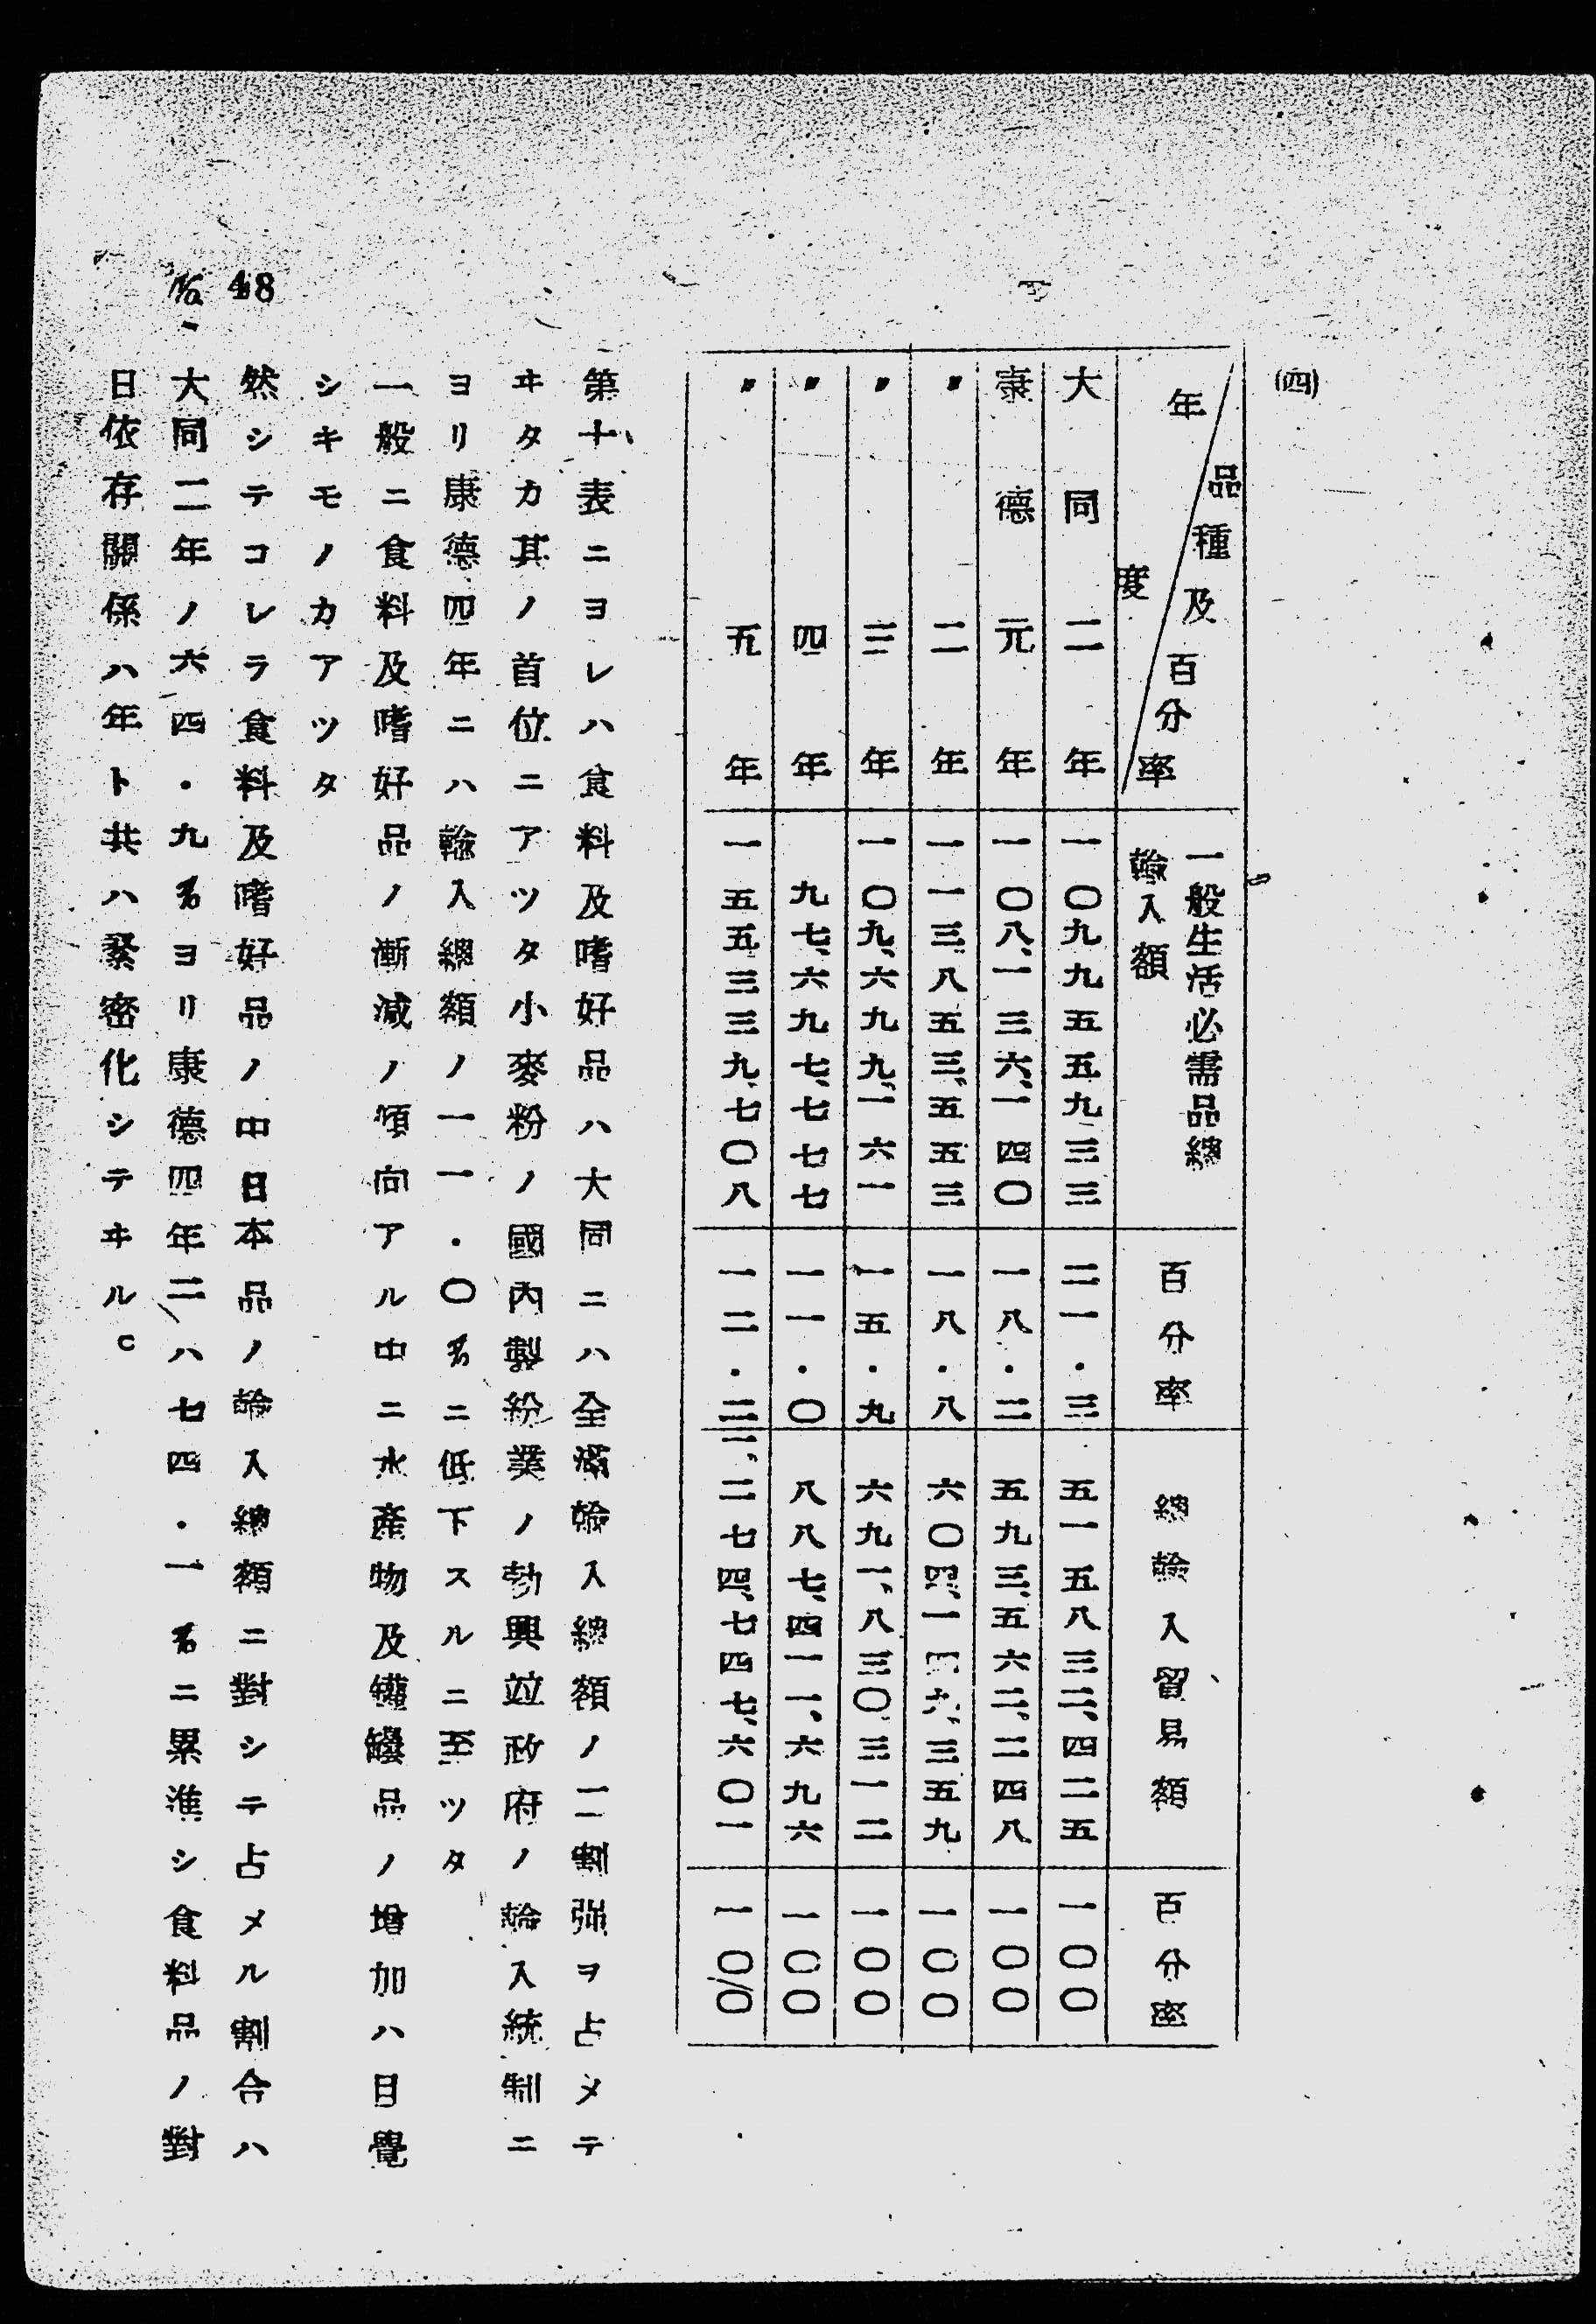 (四)
年度 品種及百分率 一般生活必需品總輸入額 百分率 總輸入貿易額 百分率
大同二年 一〇九九五五九三三 二一・三 五一五八三二、四二五 一〇〇
康德元年 一〇八、一三六、一四〇 一八・二 五九三、五六二。二四八 一〇〇
〃二年 一一三、八五三、五五三 一八・八 一〇〇
〃三年 一〇九、六九九、一六一 一五・九 六九一、八三〇三一二 一〇〇
〃四年 九七、六九七、七七七 一一・〇 八八七、四一一、六九六 一〇〇
〃五年 一五五三三九、七〇八 一二・二 一、二七四、七四七、六〇一 一〇〇
第十表ニヨレハ食料及嗜好品ハ大同ニハ全滿輸入總額ノ二割強ヲ占メテ
ヰタカ其ノ首位ニアツタ小麥粉ノ國內製紛業ノ勃興竝政府ノ輸入統制ニ
ヨリ康德四年ニハ輸入總額ノ一一・〇%ニ低下スルニ至ツタ
一般ニ食料及嗜好品ノ漸減ノ傾向アル中ニ水產物及罐罎品ノ增加ハ目覺
シキモノカアツタ
然シテコレラ食料及嗜好品ノ中日本品ノ輸入總額ニ對シテ占メル割合ハ
大同二年ノ六四・九%ヨリ康德四年二ハ七四・一%ニ累進シ食料品ノ對
日依存關係ハ年ト共ハ緊密化シテヰル。
No. 48